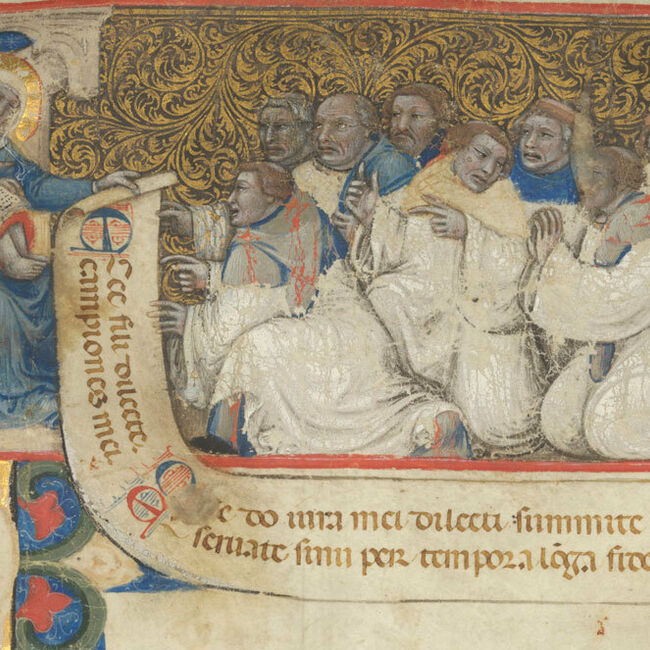 fili dilecte.
campiones mei
do iura mei dilecti summite
seruate simu per tempora lōga fide